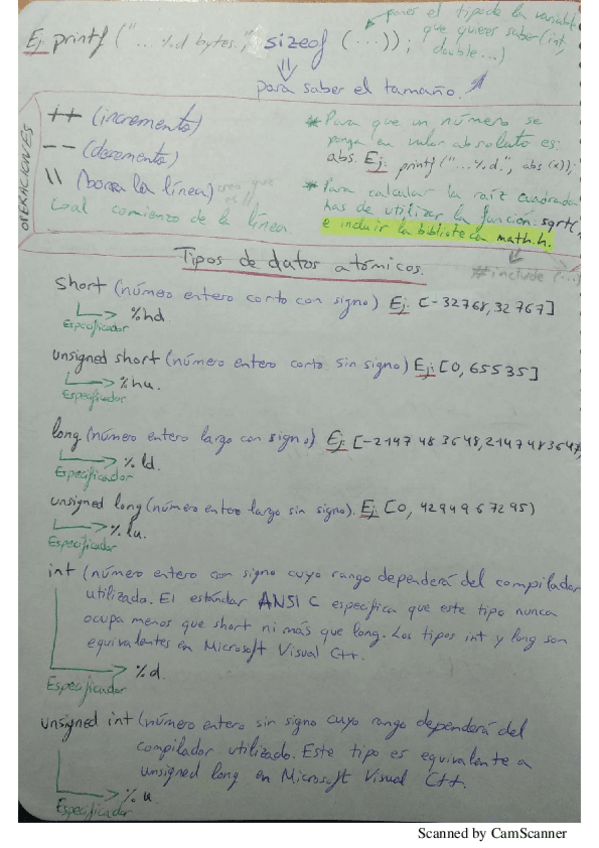 pones el tipo de la variable
que quieres saber (int,
double...)
Ej: printf ("... %d bytes.", sizeof (...));
para saber el tamaño.
OPERACIONES
++ (incremento)
-- (decremento)
\\ (borra la línea) creo que es //
(al comienzo de la línea.
# Para que un número se
ponga en valor absoluto es:
abs. Ej: printf ("...%d.", abs (x));
# Para calcular la raíz cuadrada
has de utilizar la función sqrt(
e incluir la biblioteca math.h.
#include (...)
Tipos de datos atómicos.
short (número entero corto con signo) Ej: [-32768, 32767]
%hd
Especificador
unsigned short (número entero corto sin signo) Ej: [0, 65535]
%hu.
Especificador
long (número entero largo con signo) Ej: [-2147 48 3648, 2147483647
%ld.
Especificador
unsigned long (número entero largo sin signo). Ej: [0, 4294967295)
%lu.
Especificador
int (número entero con signo cuyo rango dependerá del compilador
utilizado. El estándar ANSI C especifica que este tipo nunca
ocupa menos que short ni más que long. Los tipos int y long son
equivalentes en Microsoft Visual C++.
%d.
Especificador
unsigned int (número entero sin signo cuyo rango dependerá del
compilador utilizado. Este tipo es equivalente a
unsigned long en Microsoft Visual C++.
%u.
Especificador
Scanned by CamScanner